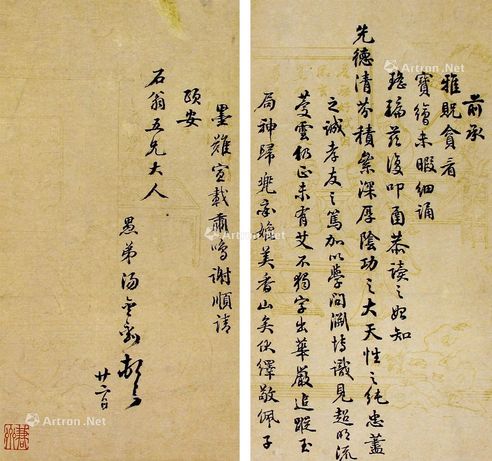 前承
雅貺貪看
寶繪未暇細誦
瑤茲復叩函恭讀之始知
先德清芬積累深厚陰功之大天性之純忠藎
之誠孝友之篤加以學問淵博識見超明流
慶雲仍正未有艾不獨字出華嚴追蹤玉
局神歸兜率媲美香山矣伏繹敬佩子
墨難宣載肅鳴謝順請
頤安
石翁五兄大人
愚弟湯金釗頓首
廿六日
Artron.Net
Artron.Net
Artron.Net
Artron.Net